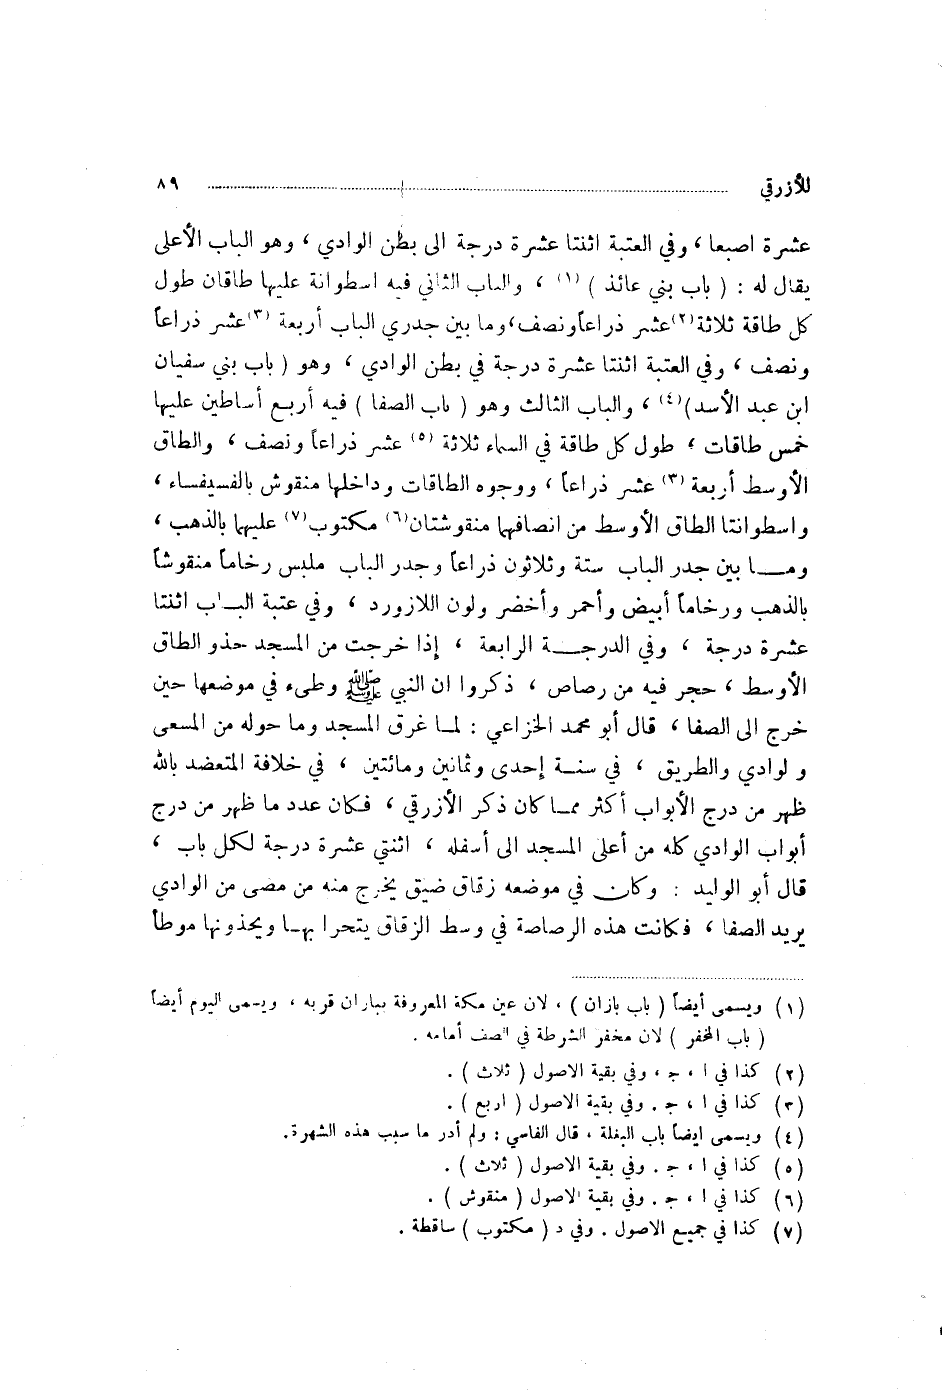 للأزرقي ٨٩
عشرة اصبعا ، وفي العتبة اثنتا عشرة درجة الى بطن الوادي ، وهو الباب الأعلى
يقال له : ( باب بني عائذ ) (١) ، والباب الثاني فيه اسطوانة عليها طاقان طول
كل طاقة ثلاثة(٢)عشر ذراعاً ونصف، وما بين جدري الباب أربعة (٣)عشر ذراعاً
ونصف ، وفي العتبة اثنتا عشرة درجة في بطن الوادي ، وهو ( باب بني سفيان
ابن عبد الأسد)(٤) ، والباب الثالث وهو ( باب الصفا ) فيه أربع أساطين عليها
خمس طاقات ، طول كل طاقة في السماء ثلاثة (٥) عشر ذراعاً ونصف ، والطاق
الأوسط أربعة (٣) عشر ذراعاً ، ووجوه الطاقات وداخلها منقوش بالفسيفساء ،
واسطوانتا الطاق الأوسط من انصافهما منقوشتان(٦) مكتوب(٧) عليهما بالذهب ،
وما بين جدر الباب ستة وثلاثون ذراعاً وجدر الباب ملبس رخاماً منقوشاً
بالذهب ورخاماً أبيض وأحمر وأخضر ولون اللازورد ، وفي عتبة الباب اثنتا
عشرة درجة ، وفي الدرجة الرابعة ، إذا خرجت من المسجد حذو الطاق
الأوسط ، حجر فيه من رصاص ، ذكروا ان النبي ﷺ وطىء في موضعها حين
خرج الى الصفا ، قال أبو محمد الخزاعي : لما غرق المسجد وما حوله من المسعى
و لوادي والطريق ، في سنة إحدى وثمانين ومائتين ، في خلافة المتعضد بالله
ظهر من درج الأبواب أكثر مما كان ذكر الأزرقي ، فكان عدد ما ظهر من درج
أبواب الوادي كله من أعلى المسجد الى أسفله ، اثنتي عشرة درجة لكل باب ،
قال أبو الوليد : وكان في موضعه زقاق ضيق يخرج منه من مضى من الوادي
يريد الصفا ، فكانت هذه الرصاصة في وسط الزقاق يتحرا بها ويحذونها موطأ
(١) ويسمى أيضاً ( باب بازان ) ، لان عين مكة المعروفة ببازان قربه ، ويسمى اليوم أيضاً
( باب المخفر ) لان مخفر الشرطة في الصف أمامه .
(٢) كذا في ا ، ج ، وفي بقية الاصول ( ثلاث ) .
(٣) كذا في ا ، ج . وفي بقية الاصول ( اربع ) .
(٤) ويسمى ايضاً باب البغلة ، قال الفاسي : ولم أدر ما سبب هذه الشهرة.
(٥) كذا في ا ، ج . وفي بقية الاصول ( ثلاث ) .
(٦) كذا في ا ، ج . وفي بقية الاصول ( منقوش ) .
(٧) كذا في جميع الاصول . وفي د ( مكتوب ) ساقطة .